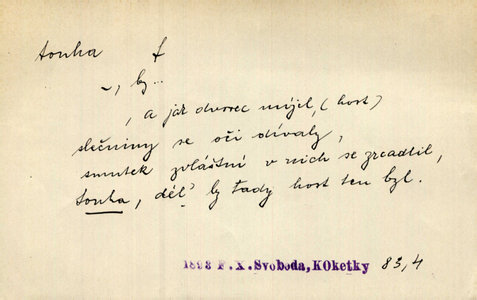 touha f
~, by...
, a jak dvorec míjel, (host)
slečniny se oči dívaly,
smutek zvláštní v nich se zrcadlil,
touha, děl' by tady host ten byl.
1893 F.X.Svoboda, KOketky 83,4